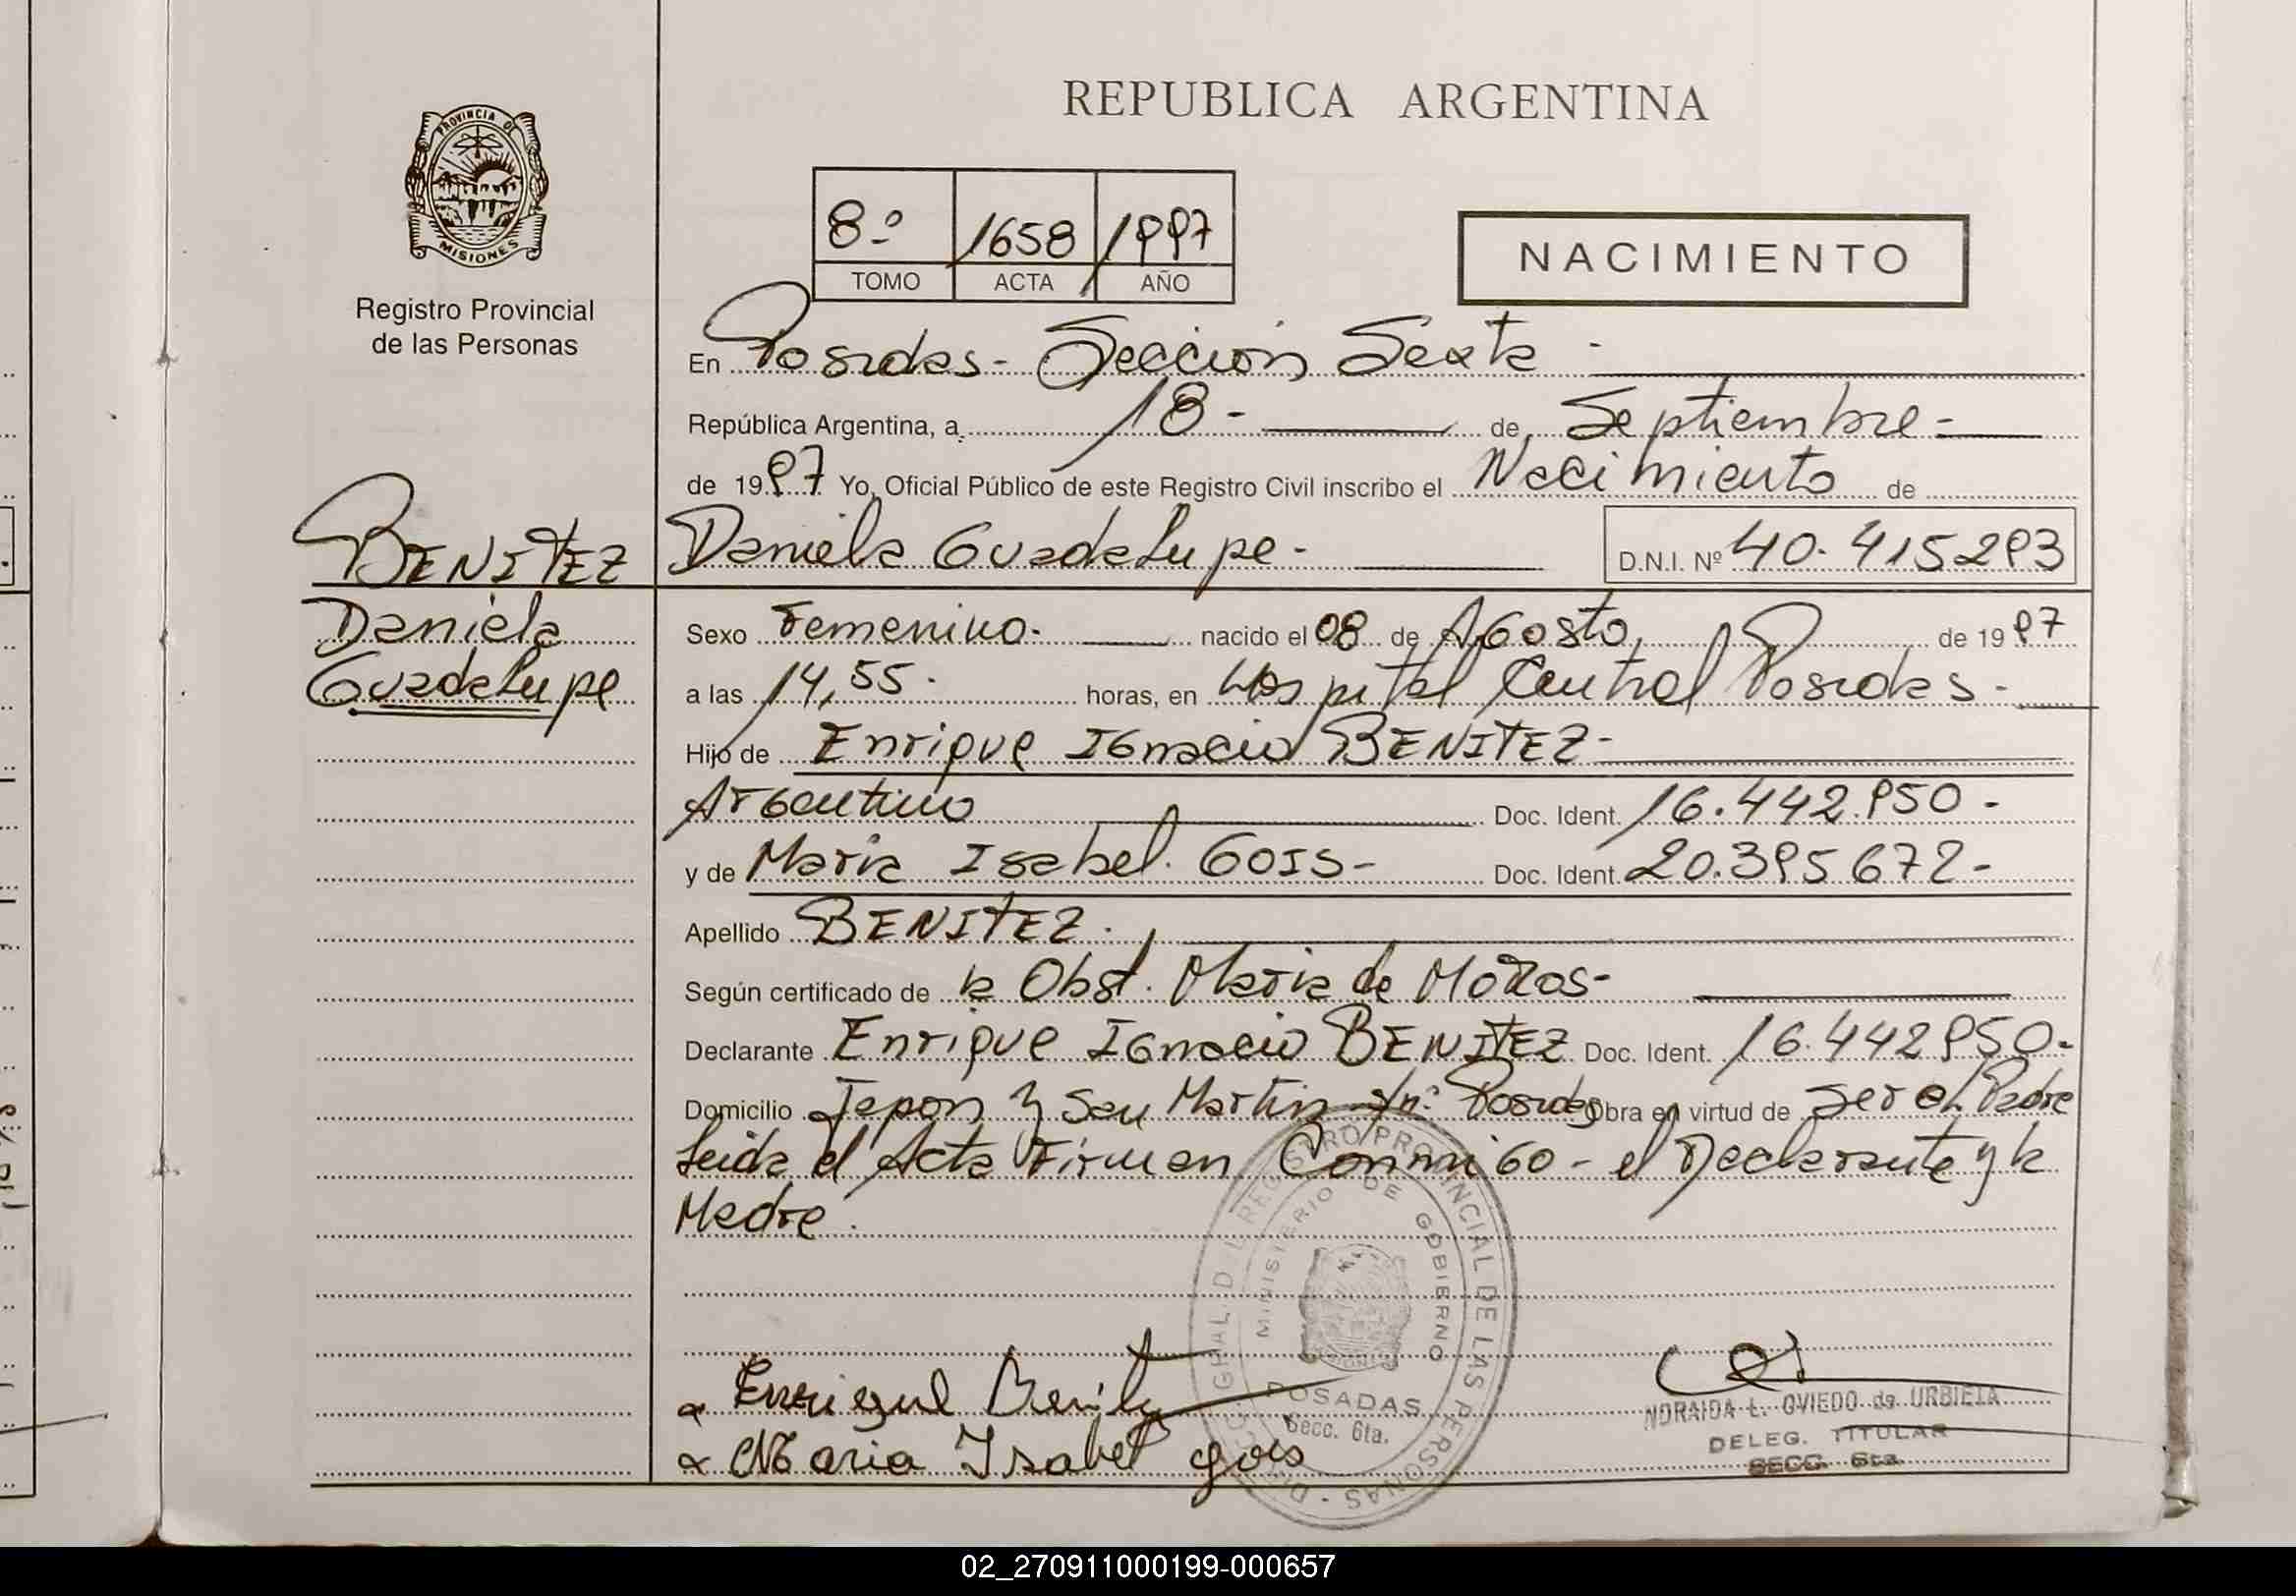 REPUBLICA ARGENTINA
PROVINCIA DE
MISIONES
Registro Provincial
de las Personas
8º 1658 1997
TOMO ACTA AÑO
NACIMIENTO
En Posadas - Sección Sexta -
República Argentina, a 18 - de Septiembre -
de 1997 Yo, Oficial Público de este Registro Civil inscribo el Nacimiento de
BENITEZ
Daniela
Guadalupe
Daniela Guadalupe - D.N.I. Nº 40.415293
Sexo Femenino. nacido el 08 de Agosto de 1997
a las 14,55. horas, en Hospital Central Posadas -
Hijo de Enrique Ignacio BENITEZ -
Argentino Doc. Ident. 16.442.950 -
y de Maria Isabel. GOIS - Doc. Ident. 20.395672 -
Apellido BENITEZ.
Según certificado de la Obst. Maria de
Declarante Enrique Ignacio BENITEZ Doc. Ident. 16.442950.
Domicilio Japon y San Martin s/nº Posadas Obra en virtud de ser el Padre
Leida el Acta Firman Conmigo - el Declarante y la
Madre.
Enrique Benitez
Maria Isabel gois
DIRECC. GRAL. DEL REGISTRO PROVINCIAL DE LAS PERSONAS
MINISTERIO DE GOBIERNO
MISIONES
POSADAS
Secc. 6ta.
NORAIDA L. OVIEDO de URBIETA
DELEG. TITULAR
SECC. 6ta.
02_270911000199-000657